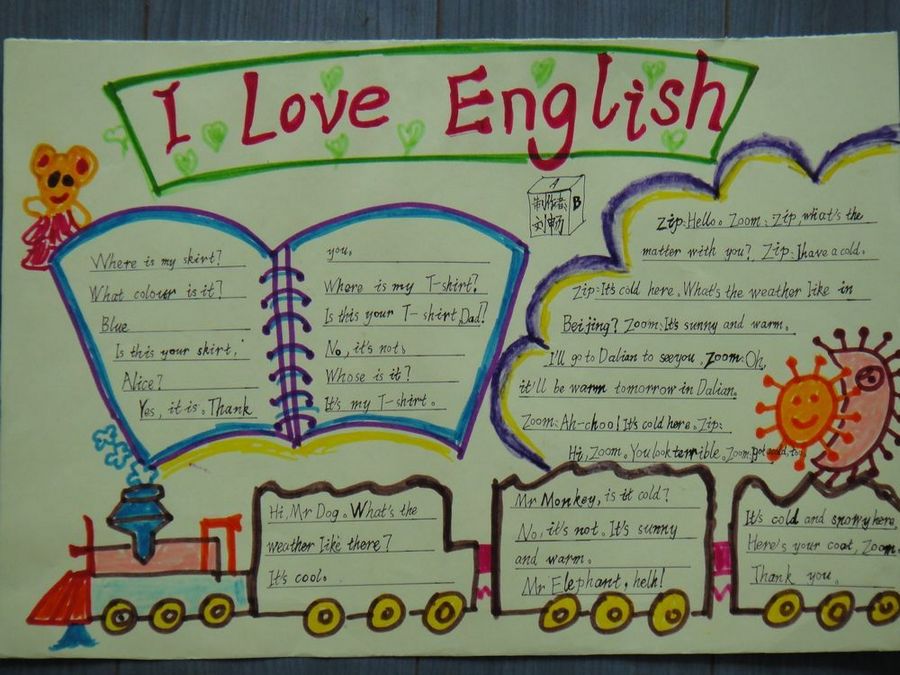 I Love English
A
制作者:
刘畅
B
Where is my skirt?
What colour is it?
Blue
Is this your skirt,
Alice?
Yes, it is. Thank
you.
Where is my T-shirt?
Is this your T-shirt, Dad?
No, it's not.
Whose is it?
It's my T-shirt.
Zip: Hello. Zoom: Zip, what's the
matter with you? Zip: I have a cold.
Zip: It's cold here. What's the weather like in
Beijing? Zoom: It's sunny and warm.
I'll go to Dalian to see you. Zoom: Oh,
it'll be warm tomorrow in Dalian.
Zoom: Ah-choo! It's cold here. Zip:
Hi, Zoom. You look terrible. Zoom:
Hi, Mr Dog. What's the
weather like there?
It's cool.
Mr Monkey, is it cold?
No, it's not. It's sunny
and warm.
Mr Elephant, helh!
It's cold and snowy here.
Here's your coat, Zoom.
Thank you.